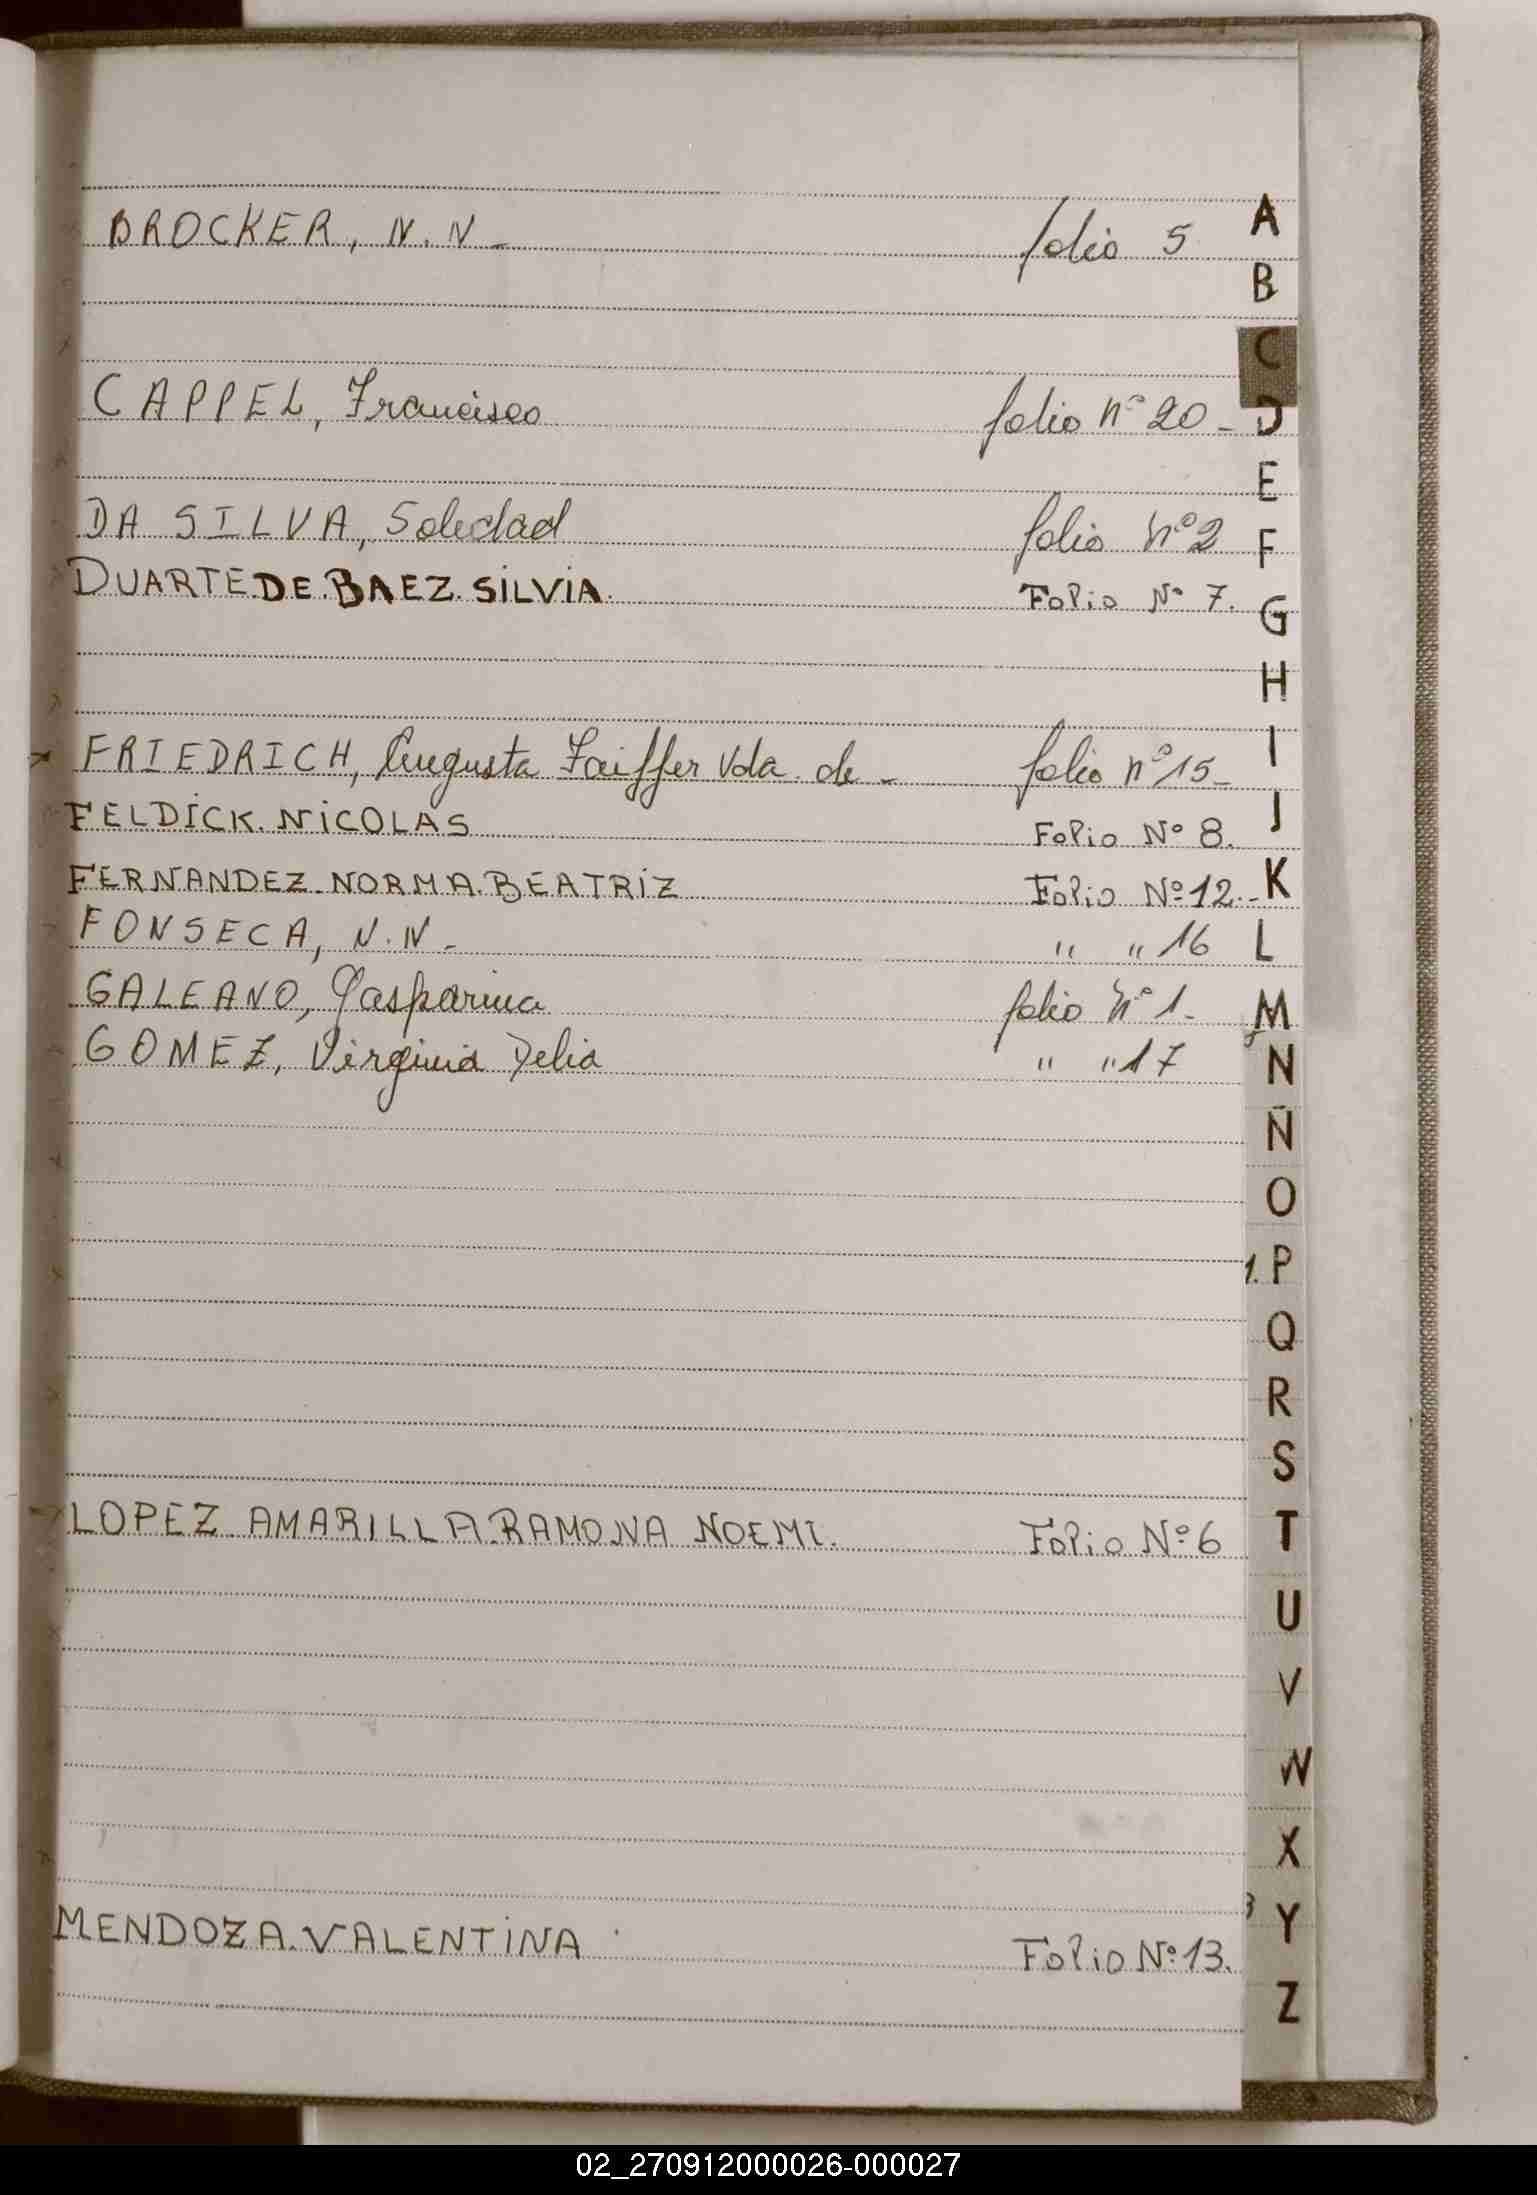 BROCKER, N.N - folio 5
CAPPEL, Francisco folio nº 20 -
DA SILVA, Soledad folio nº 2
DUARTE DE. BAEZ. SILVIA. Folio Nº 7.
FRIEDRICH, Augusta Faiffer Vda. de - folio nº 15 -
FELDICK. NICOLAS Folio Nº 8.
FERNANDEZ. NORMA. BEATRIZ Folio Nº 12. -
FONSECA, N.N. - " " 16
GALEANO, Gasparina folio nº 1 -
GOMEZ, Virginia Delia " " 17
LOPEZ AMARILLA. RAMONA NOEMI. Folio Nº 6
MENDOZA. VALENTINA Folio Nº 13.
A
B
C
D
E
F
G
H
I
J
K
L
M
N
Ñ
O
P
Q
R
S
T
U
V
W
X
Y
Z
02_270912000026-000027